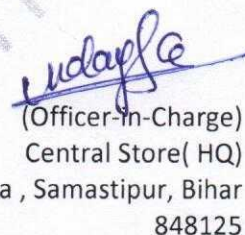 (Officer-in-Charge)
Central Store( HQ)
a , Samastipur, Bihar
848125